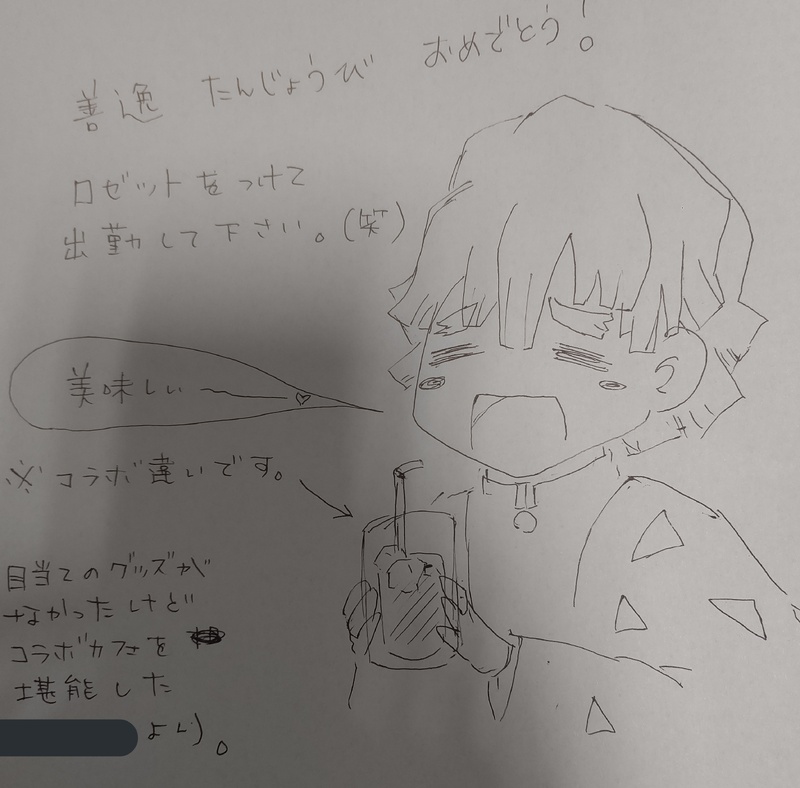 善逸 たんじょうび おめでとう!
ロゼットをつけて
出勤して下さい。(笑)
美味しい――♡
※コラボ違いです。
目当てのグッズが
なかったけど
コラボカフェを
堪能した
より)。